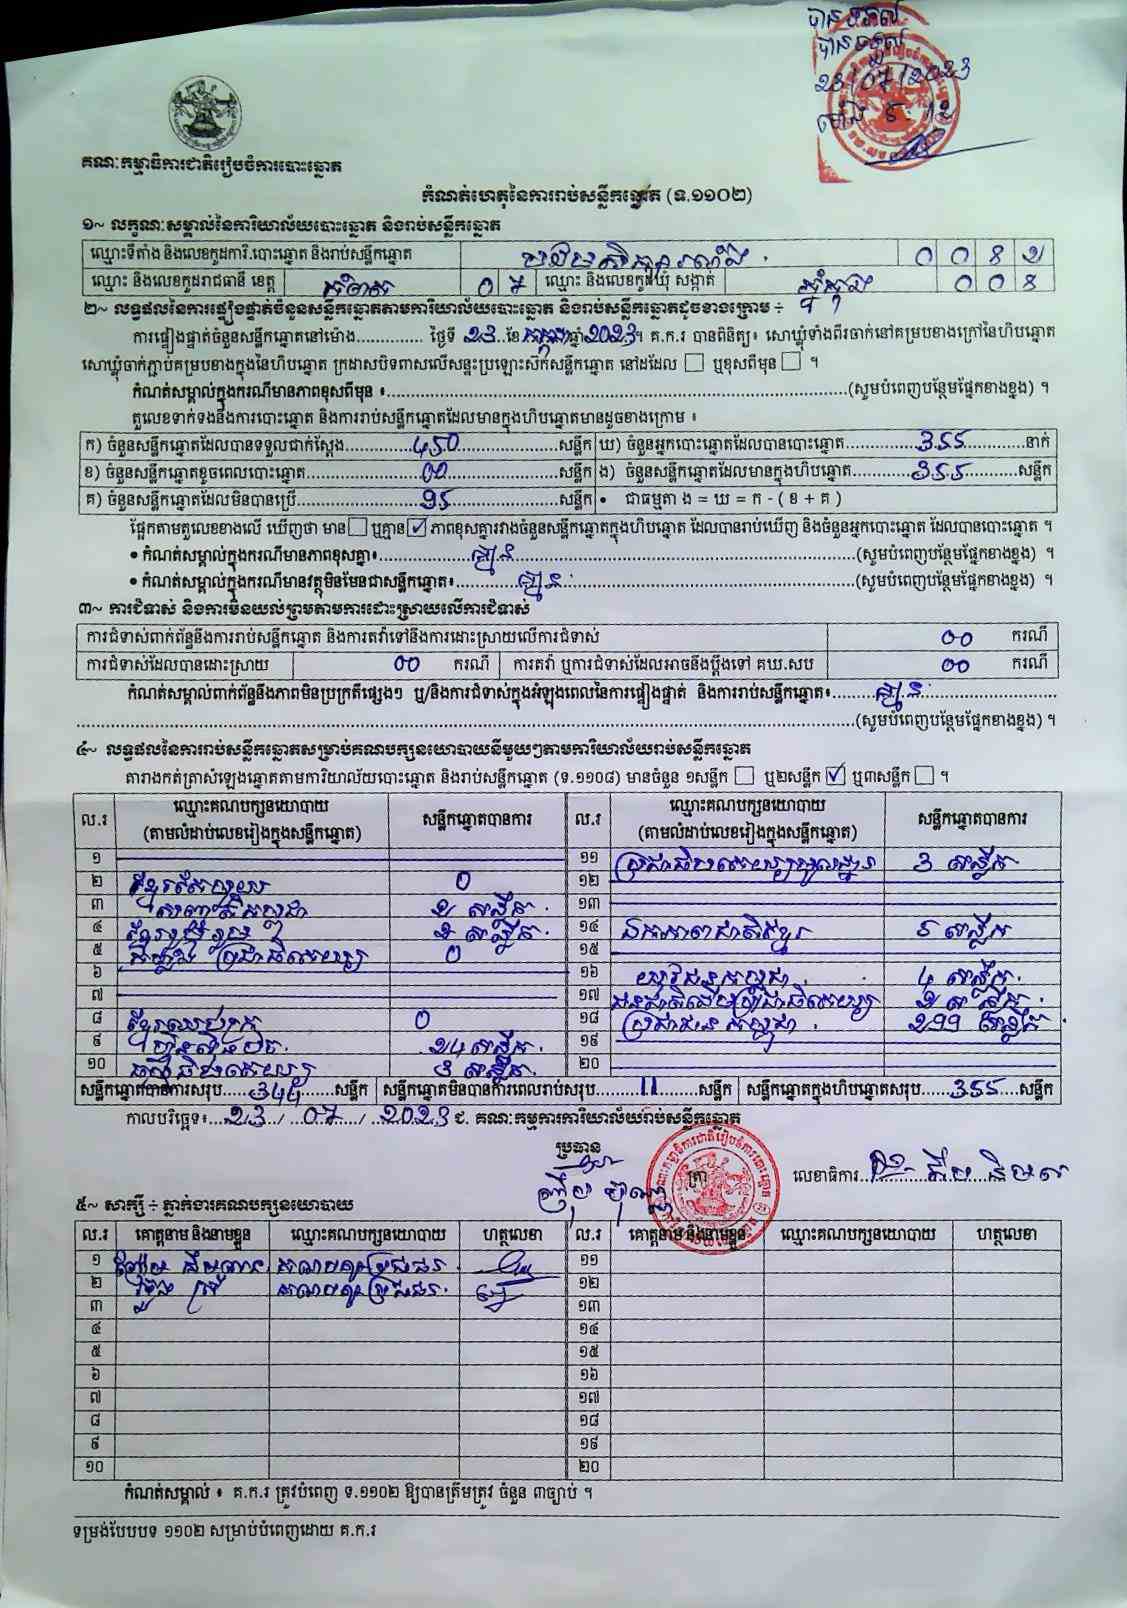 បានទទួល
23/07/2023
ម៉ោង
គណៈកម្មាធិការជាតិរៀបចំការបោះឆ្នោត
កំណត់ហេតុនៃការរាប់សន្លឹកឆ្នោត (ទ.១១០២)
១~ លក្ខណៈសម្គាល់នៃការិយាល័យបោះឆ្នោត និងរាប់សន្លឹកឆ្នោត
ឈ្មោះទីតាំង និងលេខកូដការិ.បោះឆ្នោត និងរាប់សន្លឹកឆ្នោត
ឈ្មោះ និងលេខកូដរាជធានី ខេត្ត កំពត 0 7 ឈ្មោះ និងលេខកូដឃុំ សង្កាត់
២~ លទ្ធផលនៃការផ្ទៀងផ្ទាត់ចំនួនសន្លឹកឆ្នោតតាមការិយាល័យបោះឆ្នោត និងរាប់សន្លឹកឆ្នោតដូចខាងក្រោម ÷
ការផ្ទៀងផ្ទាត់ចំនួនសន្លឹកឆ្នោតនៅម៉ោង.............. ថ្ងៃទី 23 ខែ កក្កដា ឆ្នាំ 2023។ គ.ក.រ បានពិនិត្យ៖ សោឃ្លុំទាំងពីរចាក់នៅគម្របខាងក្រៅនៃហិបឆ្នោត
សោឃ្លុំចាក់ភ្ជាប់គម្របខាងក្នុងនៃហិបឆ្នោត ក្រដាសបិទពាសលើសន្ទះប្រឡោះស៊កសន្លឹកឆ្នោត នៅដដែល ☐ ឬខុសពីមុន ☐ ។
កំណត់សម្គាល់ក្នុងករណីមានភាពខុសពីមុន ៖..............(សូមបំពេញបន្ថែមផ្នែកខាងខ្នង) ។
តួលេខទាក់ទងនឹងការបោះឆ្នោត និងការរាប់សន្លឹកឆ្នោតដែលមានក្នុងហិបឆ្នោតមានដូចខាងក្រោម ៖
ក) ចំនួនសន្លឹកឆ្នោតដែលបានទទួលជាក់ស្តែង 450 សន្លឹក ឃ) ចំនួនអ្នកបោះឆ្នោតដែលបានបោះឆ្នោត 355 នាក់
ខ) ចំនួនសន្លឹកឆ្នោតខូចពេលបោះឆ្នោត 00 សន្លឹក ង) ចំនួនសន្លឹកឆ្នោតដែលមានក្នុងហិបឆ្នោត 355 សន្លឹក
គ) ចំនួនសន្លឹកឆ្នោតដែលមិនបានប្រើ 95 សន្លឹក • ជាធម្មតា ង = ឃ = ក - ( ខ + គ )
ផ្អែកតាមតួលេខខាងលើ ឃើញថា មាន ☐ ឬគ្មាន ☑ ភាពខុសគ្នារវាងចំនួនសន្លឹកឆ្នោតក្នុងហិបឆ្នោត ដែលបានរាប់ឃើញ និងចំនួនអ្នកបោះឆ្នោត ដែលបានបោះឆ្នោត ។
• កំណត់សម្គាល់ក្នុងករណីមានភាពខុសគ្នា៖ គ្មាន (សូមបំពេញបន្ថែមផ្នែកខាងខ្នង) ។
• កំណត់សម្គាល់ក្នុងករណីមានវត្ថុមិនមែនជាសន្លឹកឆ្នោត៖ គ្មាន (សូមបំពេញបន្ថែមផ្នែកខាងខ្នង) ។
៣~ ការជំទាស់ និងការមិនយល់ព្រមតាមការដោះស្រាយលើការជំទាស់
ការជំទាស់ពាក់ព័ន្ធនឹងការរាប់សន្លឹកឆ្នោត និងការតវ៉ាទៅនឹងការដោះស្រាយលើការជំទាស់ 00 ករណី
ការជំទាស់ដែលបានដោះស្រាយ 00 ករណី ការតវ៉ា ឬការជំទាស់ដែលអាចនឹងប្តឹងទៅ គឃ.សប 00 ករណី
កំណត់សម្គាល់ពាក់ព័ន្ធនឹងភាពមិនប្រក្រតីផ្សេងៗ ឬ/និងការជំទាស់ក្នុងអំឡុងពេលនៃការផ្ទៀងផ្ទាត់ និងការរាប់សន្លឹកឆ្នោត៖ គ្មាន
(សូមបំពេញបន្ថែមផ្នែកខាងខ្នង) ។
៤~ លទ្ធផលនៃការរាប់សន្លឹកឆ្នោតសម្រាប់គណបក្សនយោបាយនីមួយៗតាមការិយាល័យរាប់សន្លឹកឆ្នោត
តារាងកត់ត្រាសំឡេងឆ្នោតតាមការិយាល័យបោះឆ្នោត និងរាប់សន្លឹកឆ្នោត (ទ.១១០៨) មានចំនួន ១សន្លឹក ☐ ឬ២សន្លឹក ☑ ឬ៣សន្លឹក ☐ ។
ល.រ ឈ្មោះគណបក្សនយោបាយ (តាមលំដាប់លេខរៀងក្នុងសន្លឹកឆ្នោត) សន្លឹកឆ្នោតបានការ ល.រ ឈ្មោះគណបក្សនយោបាយ (តាមលំដាប់លេខរៀងក្នុងសន្លឹកឆ្នោត) សន្លឹកឆ្នោតបានការ
១ ១១ ប្រជាធិបតេយ្យមូលដ្ឋាន 3 សន្លឹក
២ 0 ១២
៣ 2 សន្លឹក ១៣
៤ ខ្មែររួបរួម សន្លឹក ១៤ ឯកភាពជាតិខ្មែរ 5 សន្លឹក
៥ ប្រជាធិបតេយ្យ 0 ១៥
៦ ១៦ យុវជនកម្ពុជា 4 សន្លឹក
៧ ១៧ ជនជាតិដើមប្រជាធិបតេយ្យ សន្លឹក
៨ 0 ១៨ ប្រជាជនកម្ពុជា 299 សន្លឹក
៩ ហ៊្វុនស៊ិនប៉ិច 24 សន្លឹក ១៩
១០ សន្លឹក ២០
សន្លឹកឆ្នោតបានការសរុប 344 សន្លឹក សន្លឹកឆ្នោតមិនបានការពេលរាប់សរុប 11 សន្លឹក សន្លឹកឆ្នោតក្នុងហិបឆ្នោតសរុប 355 សន្លឹក
កាលបរិច្ឆេទ៖ 23 / 07 / 2023 ជ. គណៈកម្មការការិយាល័យរាប់សន្លឹកឆ្នោត
ប្រធាន ត្រា លេខាធិការ
៥~ សាក្សី ÷ ភ្នាក់ងារគណបក្សនយោបាយ
ល.រ គោត្តនាម និងនាមខ្លួន ឈ្មោះគណបក្សនយោបាយ ហត្ថលេខា ល.រ គោត្តនាម និងនាមខ្លួន ឈ្មោះគណបក្សនយោបាយ ហត្ថលេខា
១ ១១
២ ១២
៣ ១៣
៤ ១៤
៥ ១៥
៦ ១៦
៧ ១៧
៨ ១៨
៩ ១៩
១០ ២០
កំណត់សម្គាល់ ៖ គ.ក.រ ត្រូវបំពេញ ទ.១១០២ ឱ្យបានត្រឹមត្រូវ ចំនួន ៣ច្បាប់ ។
ទម្រង់បែបបទ ១១០២ សម្រាប់បំពេញដោយ គ.ក.រ